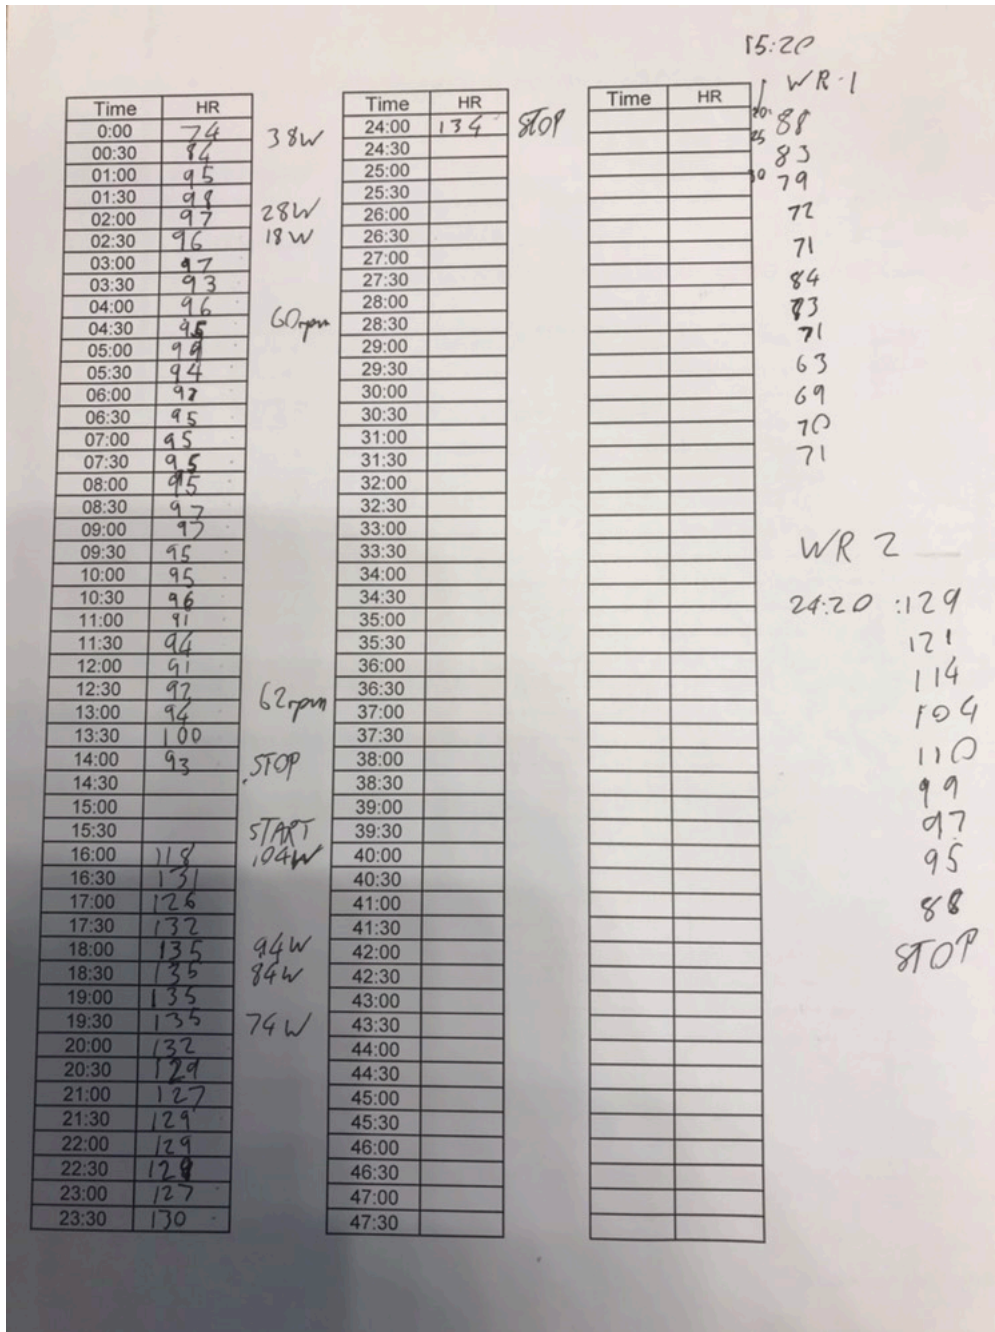 Time HR
0:00 74 38W
00:30 84
01:00 95
01:30 98
02:00 97 28W
02:30 96 18W
03:00 97
03:30 93
04:00 96
04:30 95 60rpm
05:00
05:30 94
06:00
06:30 95
07:00 95
07:30 95
08:00 95
08:30 97
09:00 97
09:30 95
10:00 95
10:30 96
11:00 91
11:30 94
12:00 91
12:30 92
13:00 94 62rpm
13:30 100
14:00 93 STOP
14:30
15:00
15:30 START
16:00 118 104W
16:30 131
17:00 126
17:30 132
18:00 135 94W
18:30 135 84W
19:00 135
19:30 135 74W
20:00 132
20:30 129
21:00 127
21:30 129
22:00 129
22:30
23:00 127
23:30 130
Time HR
24:00 134 STOP
24:30
25:00
25:30
26:00
26:30
27:00
27:30
28:00
28:30
29:00
29:30
30:00
30:30
31:00
31:30
32:00
32:30
33:00
33:30
34:00
34:30
35:00
35:30
36:00
36:30
37:00
37:30
38:00
38:30
39:00
39:30
40:00
40:30
41:00
41:30
42:00
42:30
43:00
43:30
44:00
44:30
45:00
45:30
46:00
46:30
47:00
47:30
Time HR
15:20
WR-1
20 88
25 83
30 79
72
71
84
83
71
63
69
70
71
WR 2
24:20 :129
121
114
104
110
99
97
95
88
STOP